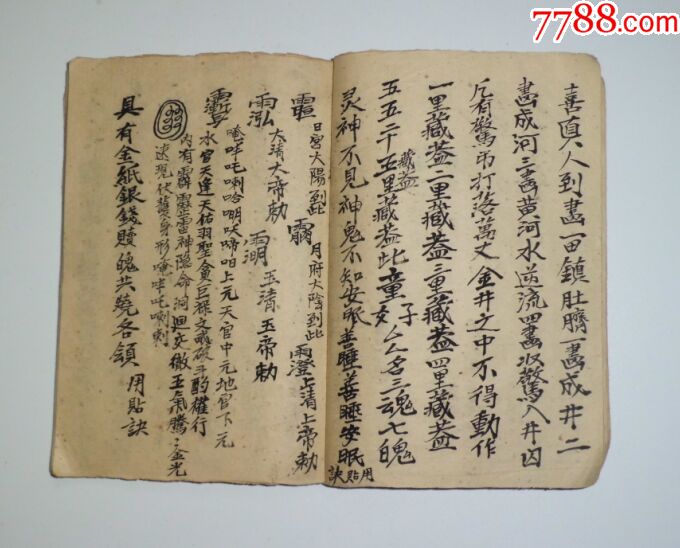 7788.com
善真人到畫一田鎮肚臍一畫成井二
畫成河三畫黄河水逆流四畫收驚入井囚
凡有驚吊打落萬丈金井之中不得動作
一里藏蓋二里藏蓋三里藏蓋四里藏蓋
五五二十五里藏蓋藏蓋此童子女人名三魂七魄
灵神不見神鬼不知安眠善睡善睡安眠
用貼訣
日宮太陽到此 月府太陰到此
上清上帝勅
太清大帝勅 玉清玉帝勅
唵吽吒唎哈 上元天官中元地官下元
水官天逢天佑羽聖 貪巨禄文 破斗 權行
内有霹靂雷神隐命洞廻交徹五氣騰騰金光
速現伏護身形唵吽吒唎
具有金紙銀錢贖魄共燒各領 用貼訣